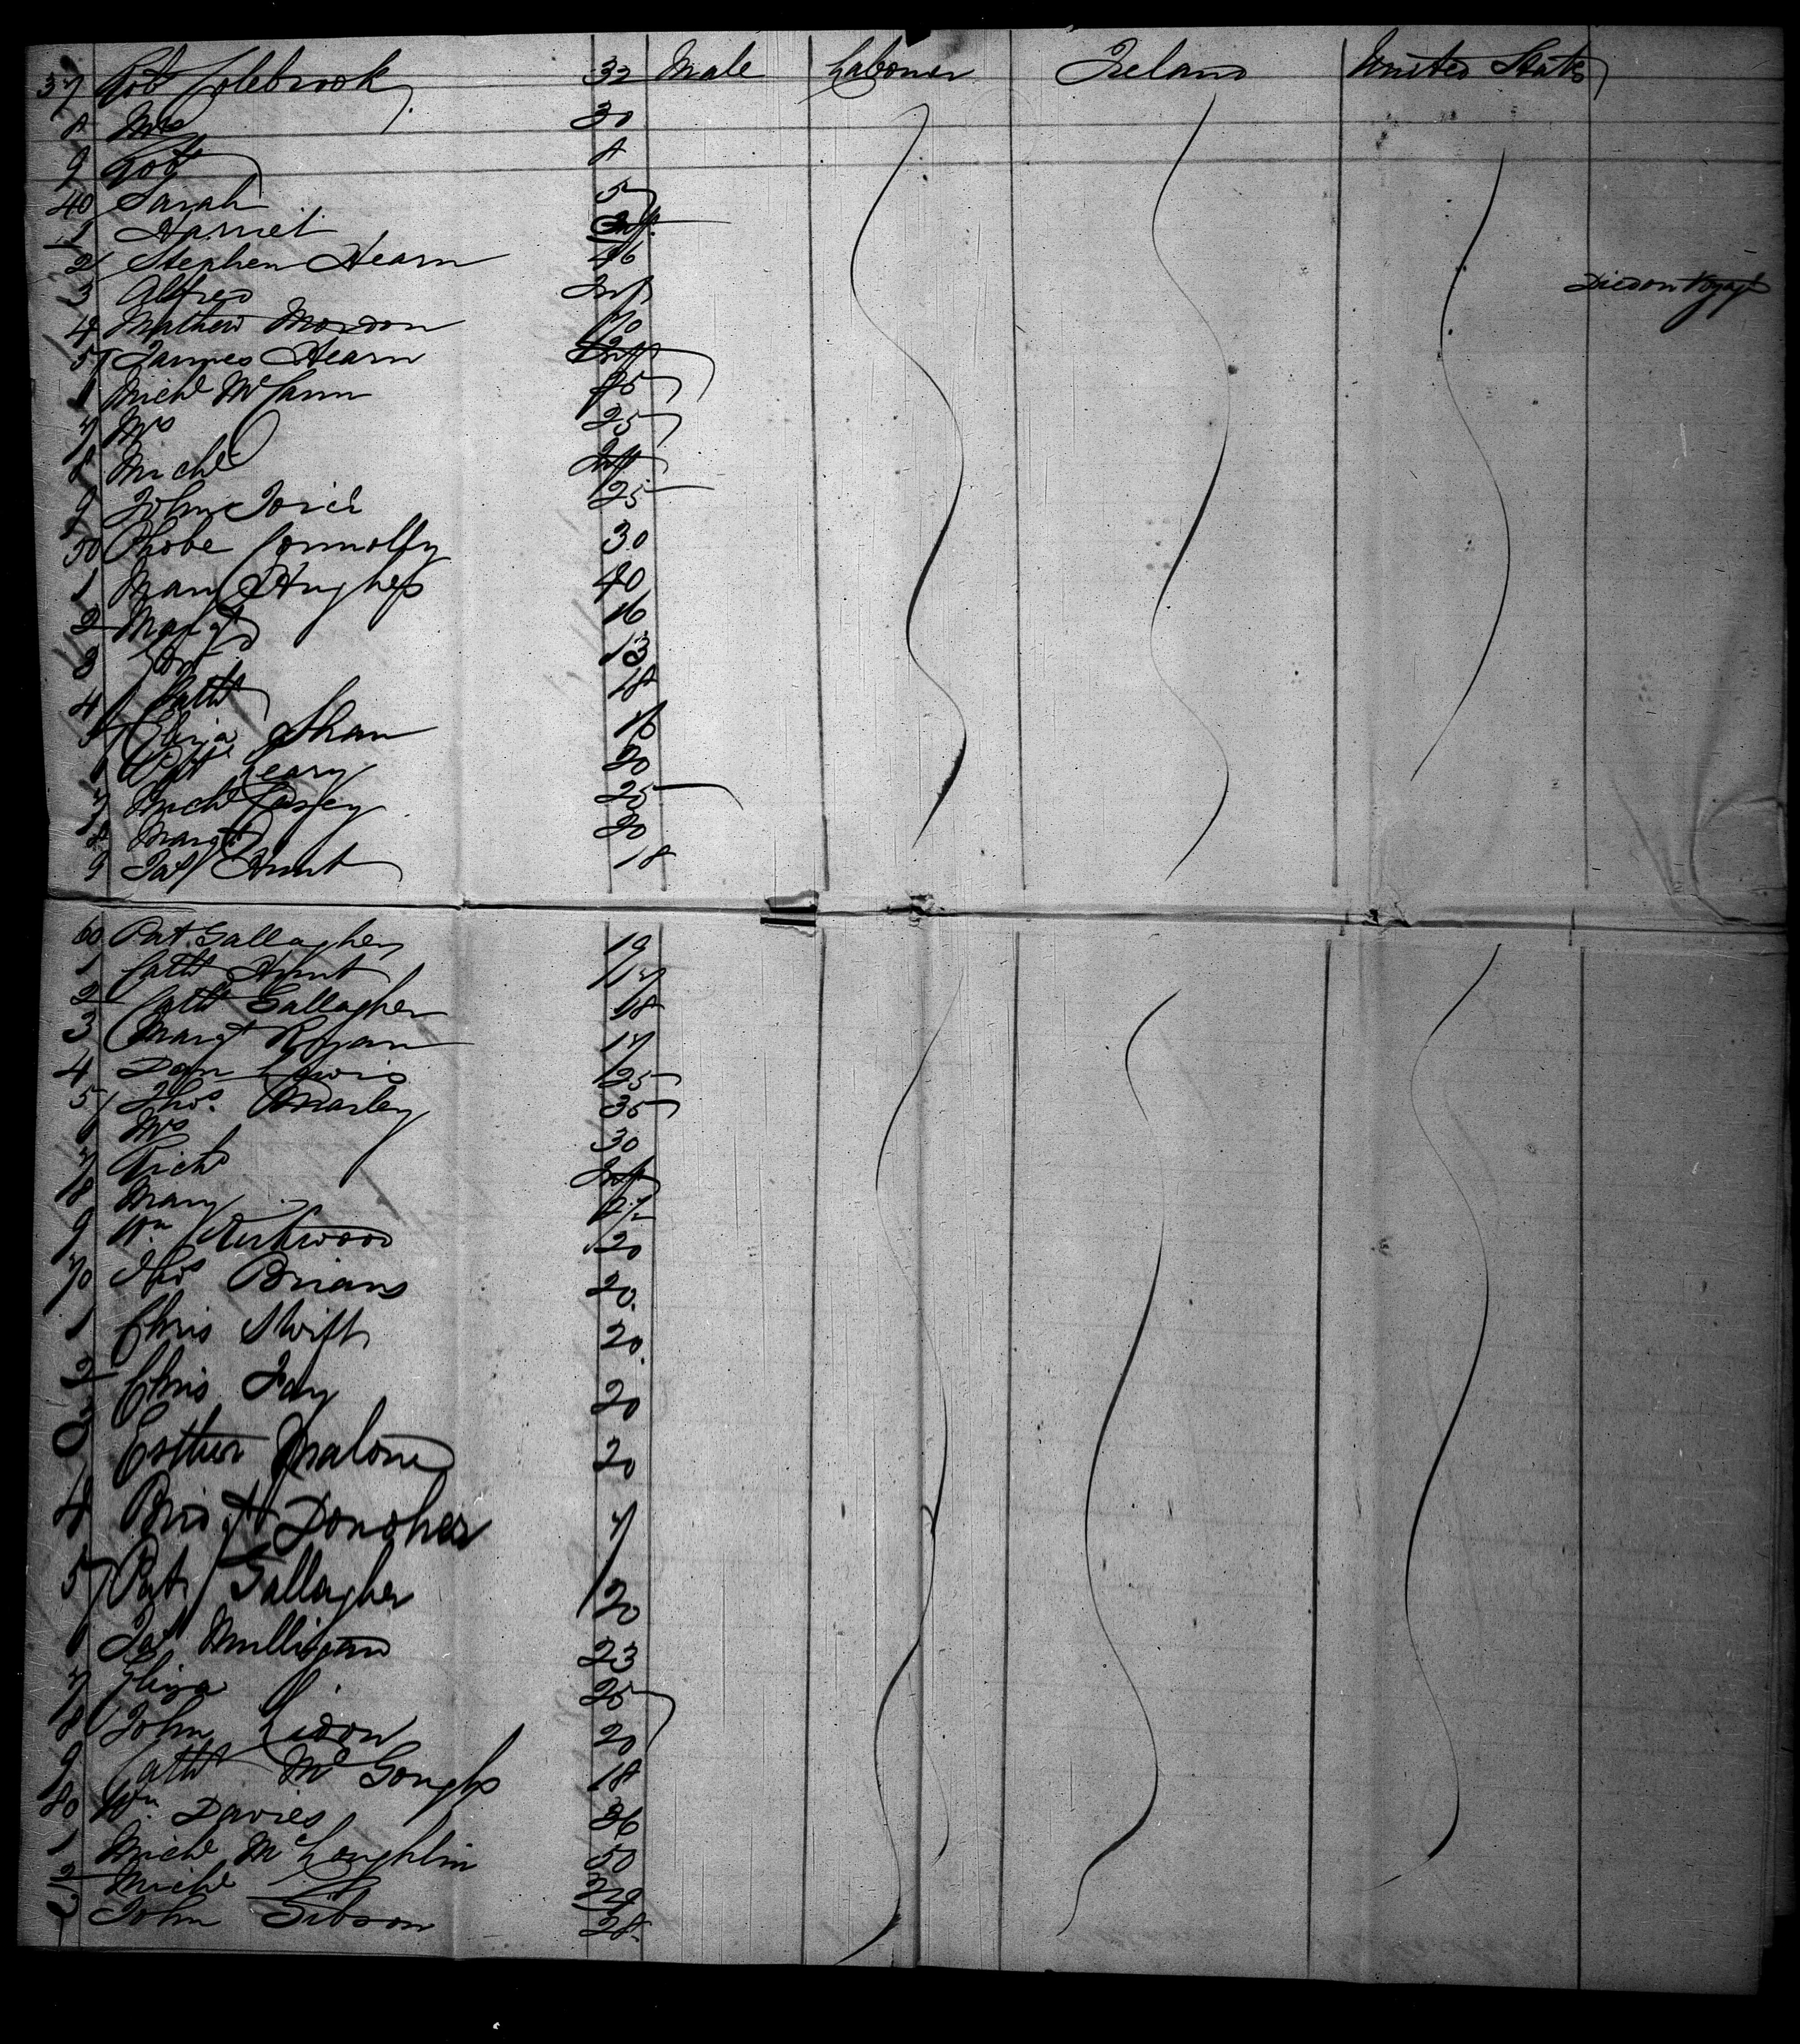 37 Rob Colebrook 32 Male Laborer Ireland United States
8 Mrs 30
9 Robt 8
40 Sarah 5
1 Harriet Inft
2 Stephen Hearn 46
3 Alfred Inft Died on Voyage
4 Mathew Mordon 70
5 James Hearn Inft
6 Michl McCann 45
7 Mrs 25
8 Michl Inft
9 John 25
50 Phobe Connolly 30
1 Mary Hughes 40
2 Margt 16
3 13
4 Cathe 18
5 Eliza Shaw 16
6 Leary 20
7 Michl Casey 25
8 Margt 20
9 Jas Hunt 18
60 Pat Gallagher 19
1 Cathe Hunt 17
2 Cathe Gallagher 18
3 Margt Rogan 17
4 Dan Lewis 25
5 Thos. Marley 35
6 Mrs 30
7 Richd Inft
8 Mary
9 Wm Kirkwood 20
70 Thos Brians 20
1 Chris Swift 20
2 Chris Fay 20
3 Esther Malone 20
4 Bridgt Donoher 7
5 Pat Gallagher 20
6 Jas Mulligan 23
7 Eliza 25
8 John Lidon 20
9 Cathe Mc Gough 18
80 Wm Davies 36
1 Michl McLoughlin 50
2 Michl 24
3 John Gibson 28